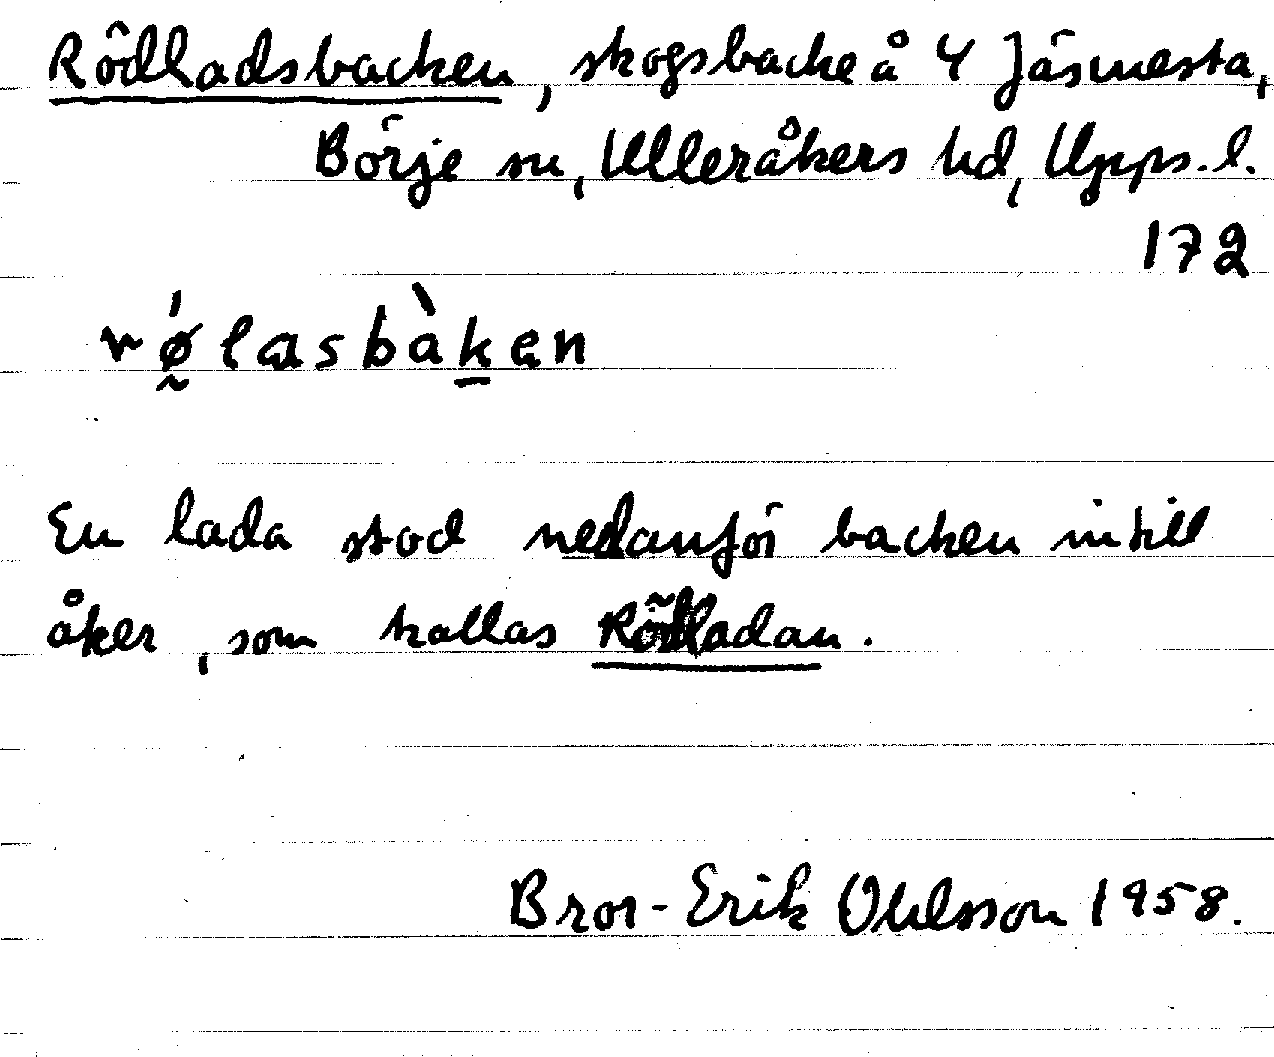 Rödladsbacken, skogsbacke å 4 Jäsmesta,
Börje sn, Ulleråkers hd, Upps. l.
172
rǿ̰lasbàk̲en
En lada stod nedanför backen intill
åker, som kallas Rödladan.
Bror-Erik Ohlsson 1958.